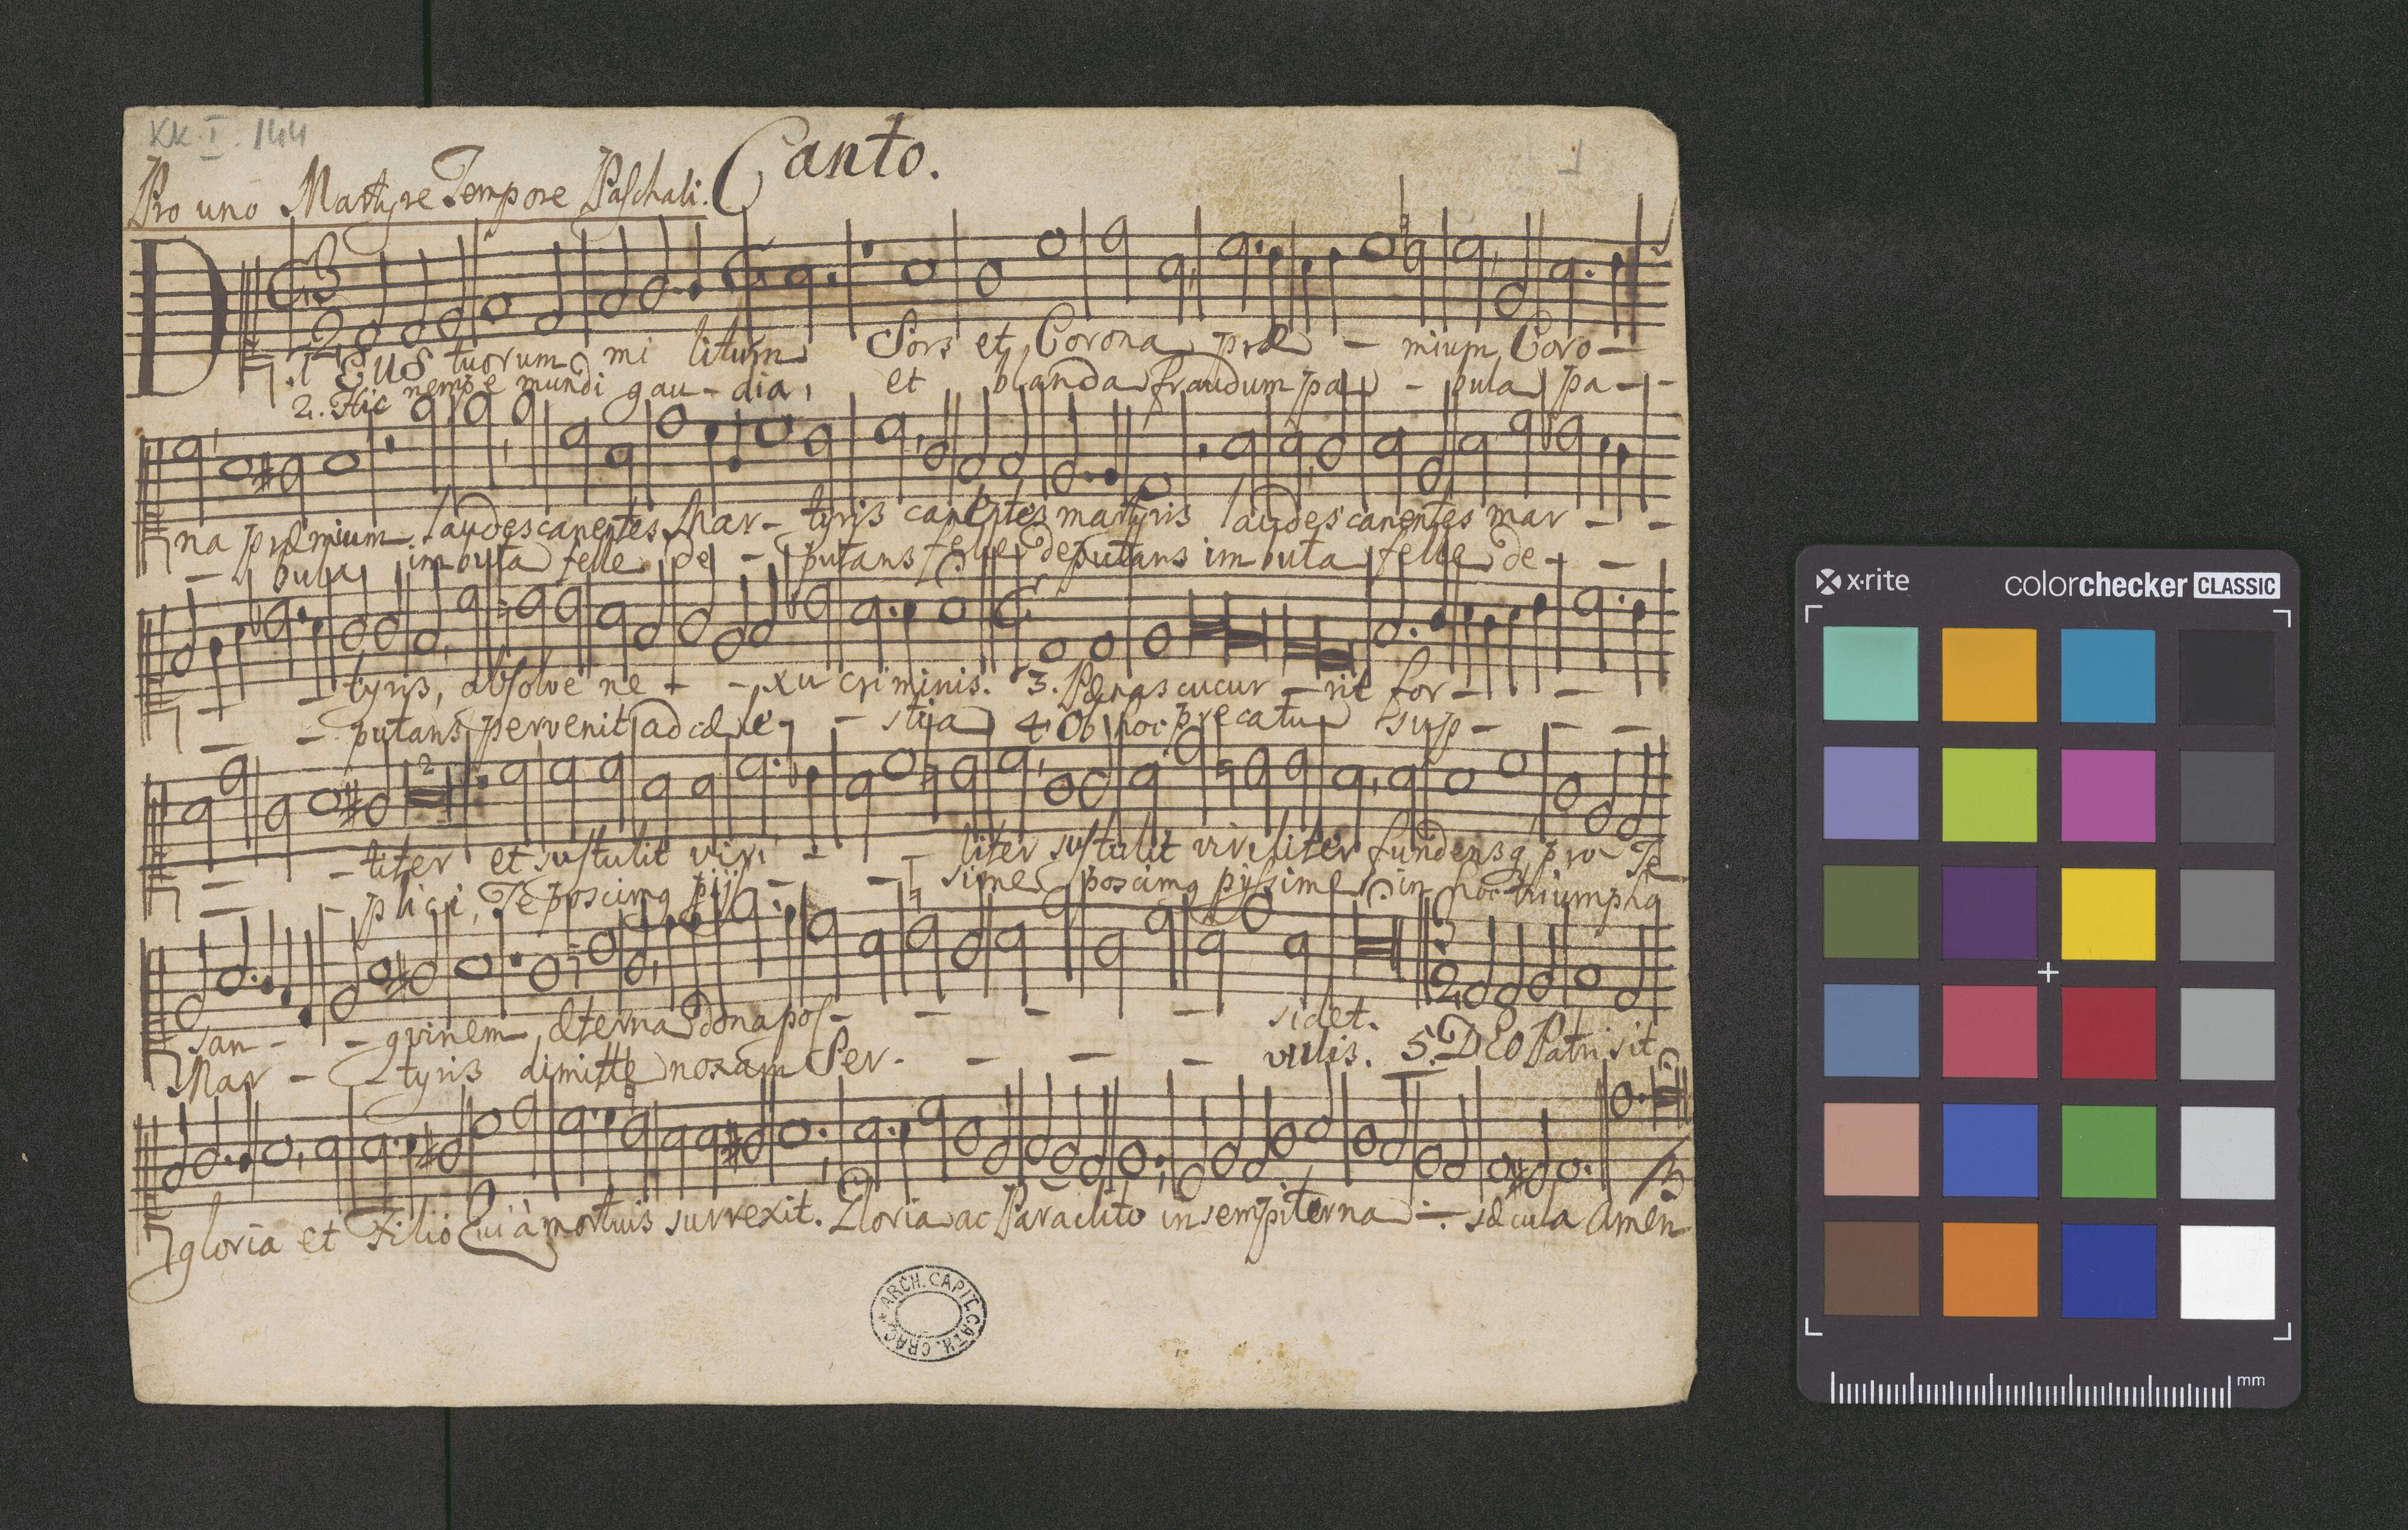 KK. I. 144
1
Canto.
Pro uno Martyre Tempore Paschali.
C 3 2
1. DEUS tuorum mi litum Sors et Corona præ - mium, Coro -
2. Hic nempe mundi gau - dia, et blanda fraudum pa - bula pa -
na præmium laudes canentes Mar - tyris canentes martyris laudes canentes mar - -
- bula imbuta felle de - putans felle deputans imbuta felle de - -
- - tyris, absolve ne - - xu criminis. 3. Pænas cucur - rit for - - -
- - putans pervenit ad cæ le - - stia 4. Ob hoc precatu sup - - -
2
- - titer et sustulit viri - - liter sustulit viriliter fundensq pro Te
- - plici, Te poscimq pij - - sime poscimq pijssime in hoc triumpho
3 2
san - - gvinem æterna dona pos - - - - sidet.
Mar - - tyris dimitte noxam Ser - - - - vulis. 5. DEO Patri sit
gloria et Filio Qui à mortuis surrexit. Gloria ac Paraclito in sempiterna -:- sæcula Amen
ARCH. CAPIT. CATH. CRAC.
x·rite
colorchecker CLASSIC
mm